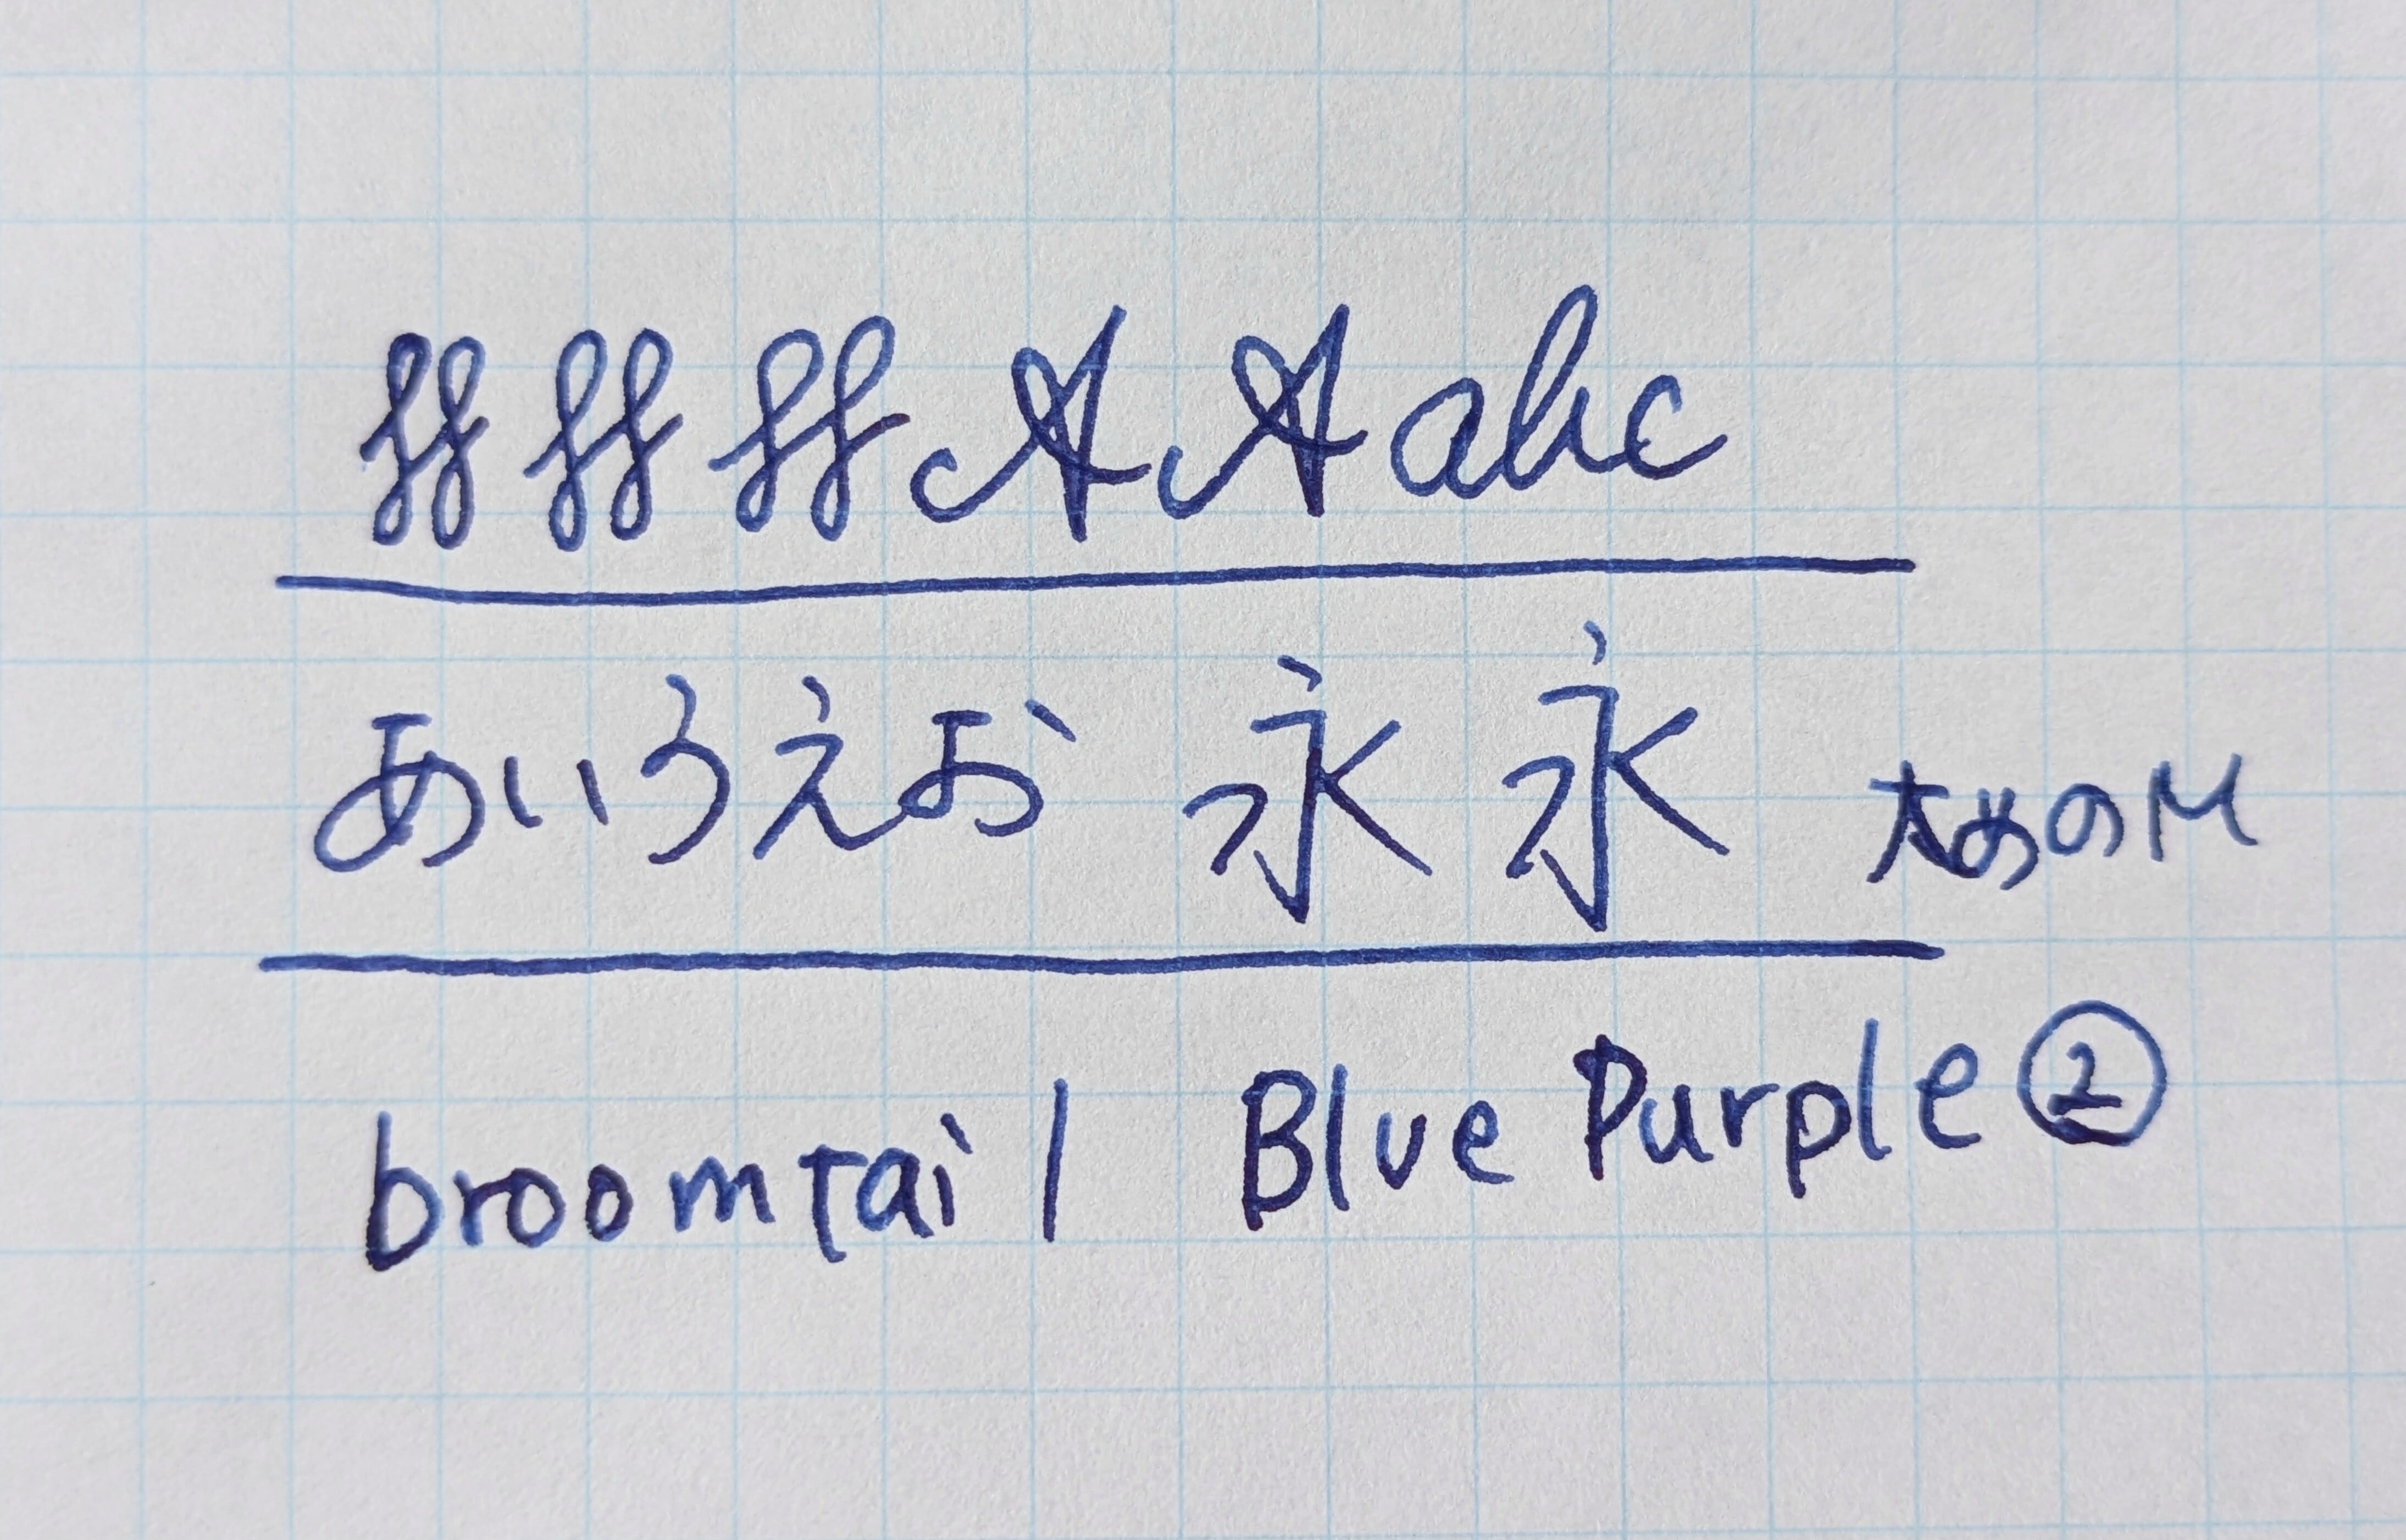 ff ff ff A A abc
あいうえお 永 永 太めのM
broomtail Blue Purple②